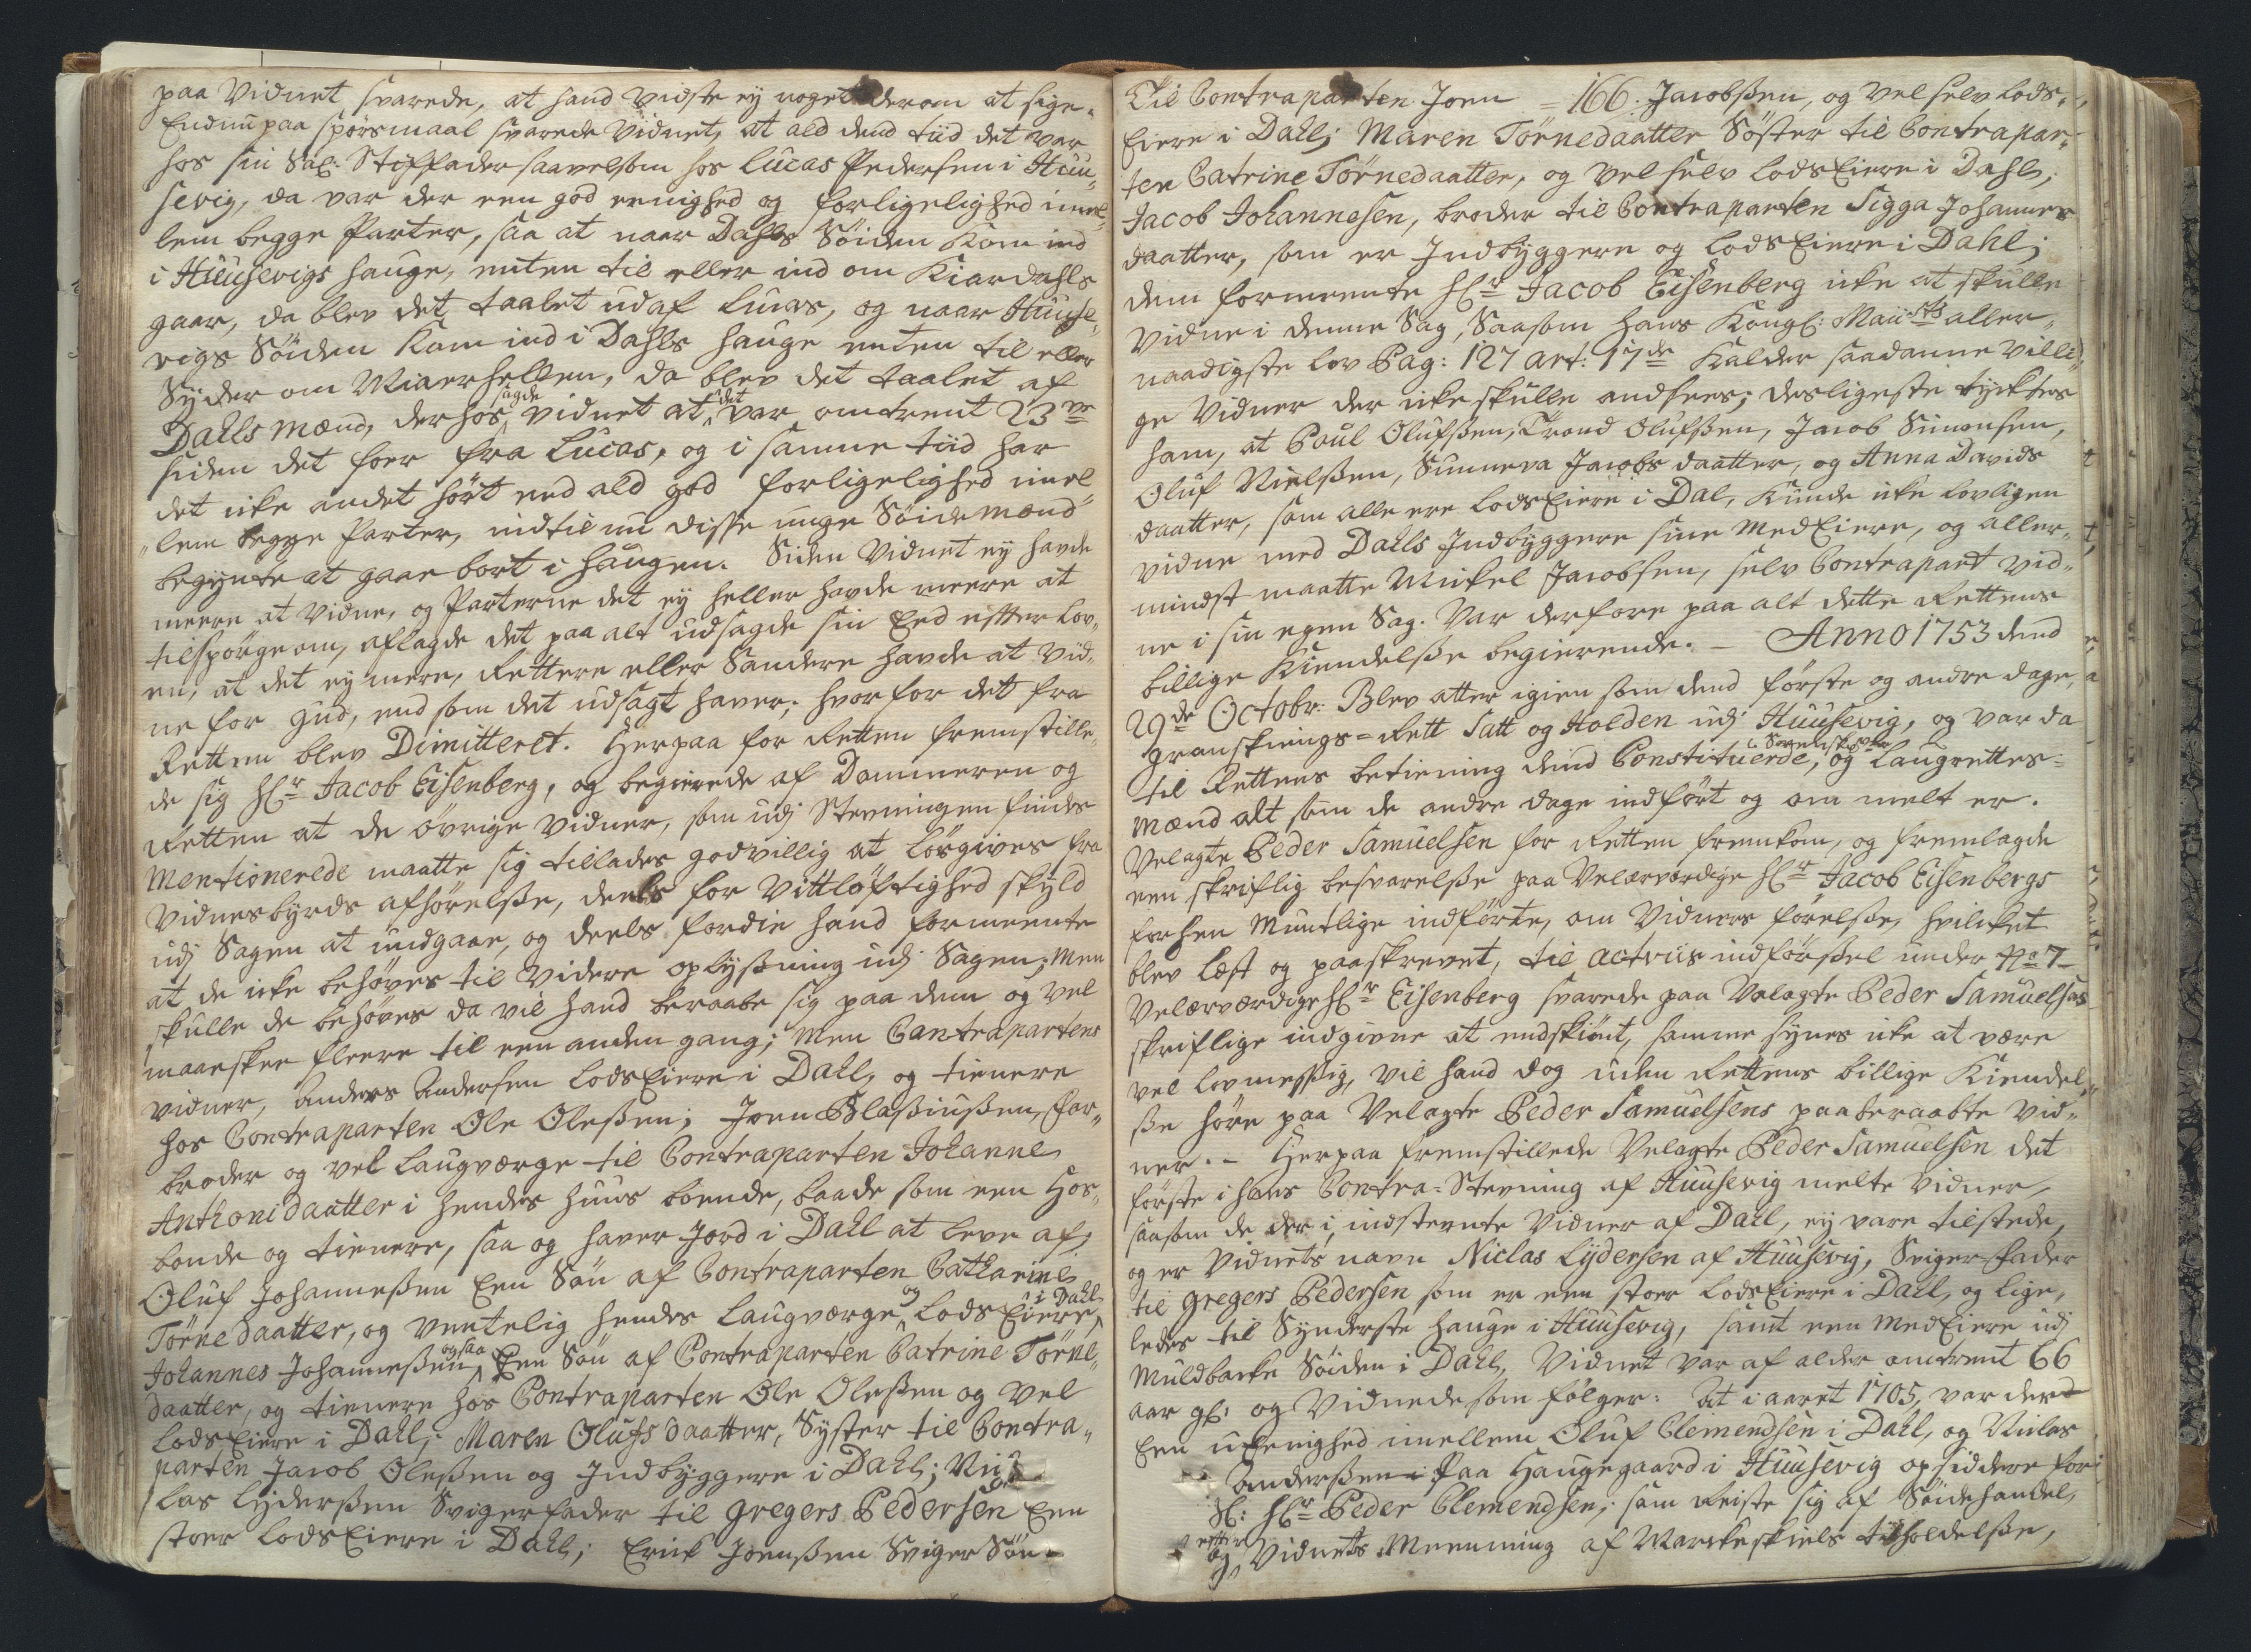 paa Vidnet svarede, at hand vidste ej noget derom at sige.
Endnu paa spörsmaal svarede Vidnet, at ald dend tiid det var
hos sin Sal: Stiffader saavelsom hos Lucas Pedersen i Huu„
sevig, da var der een god eenighed og forligelighed imel„
lem begge Parter, saa at naar Dahls Söiden kom ind
i Huusevigs hauge, enten til eller ind om Kiardahls
gaar, da blev det taalet udaf Lucas, og naar Huuse„
vigs Söiden kom ind i Dahls hauge enten til eller
Syder om Miaerhellen, da blev det taalet af
Dahls mænd, derhos sagde vidnet at det var omtrent 23ve
siden det foer fra Lucas, og i samme tiid har
det icke andet hört end ald god forligelighed imel
„lem begge Parter, indtil nu disse unge Söidemænd
begynte at gaae bort i haugen. Siden Vidnet ej havde
meere at vidne, og Parterne det ej heller havde meere at
tilspörge om, aflagde det paa alt udsagde sin Eed efter Lov„
en, at det ej mere, Rettere eller Sandere havde at vid„
ne for Gud, end som det udsagt haver; hvorfor det fra
Retten blev Dimitteret. Herpaa for Retten fremstille„
de sig Hr Jacob Eisenberg, og begierede af Dommeren og
Retten at de övrige vidner, som udj Stevningen findes
Mentionerede maatte sig tillades godvillig at lösgives fra
Vidnesbyrds afhörelsse, deels for Vittlöftighed skyld
udj Sagen at undgaae, og deels fordie hand formeente
at de icke behöves til videre oplyssning udj Sagen; Men
skulle de behöves da vil hand beraabe sig paa dem og vel
maaeskee fleere til een anden gang; Men Contrapartens
vidner, Anders Andersen Lods Eiere i Dahl, og tienere
hos Contraparten Ole Olessen; Joen Blassiussen, Far„
broder og vel Laugværge til Contraparten Johanne
Anthonidaatter i hendes huus boende, baade som een Hos„
bonde og tienere, saa og haver Jord i Dahl at leve af;
Oluf Johannessen Een Sön af Contraparten Catharine
Törnedaatter, og ventelig hendes Laugværge og Lods Eiere i Dahl,
Johannes Johannessen ogsaa Een Sön af Contraparten Catrine Törne„
daatter, og tienere hos Contraparten Ole Olessen og vel
Lods Eiere i Dahl; Maren Olufsdaatter, Syster til Contra„
parten Jacob Olessen og Indbyggere i Dahl; Nic„
las Lyderssen Svigerfader til Gregers Pedersen Een
stoer Lods Eiere i Dahl; Erich Joenssen Sviger Sön
Til Contraparten Joen = 166. Jacobssen, og vel selv Lods„
Eiere i Dahl; Maren Törnedaatter Söster til Contrapar„
ten Catrine Törnedaatter, og vel selv Lods Eiere i Dahl;
Jacob Johannesen, broder til Contraparten Sigga Johannes
daatter, som er Indbyggere og Lods Eiere i Dahl;
dem formeente Hr Jacob Eisenberg icke at skulle
vidne i denne Sag, Saasom hans Kongl: Maiists aller„
naadigste Lov Pag: 127 art: 17de Kalder saadanne Villi„
ge Vidner der icke skulle andsees; desligeste tycktes
ham, at Poul Olufssen, Trond Olufssen, Jacob Simonsen,
Oluf Nielssen, Sunneva Jacobsdaatter, og Anna Davids
daatter, som alle ere Lods Eiere i Dal, kunde icke lovligen
vidne med Dahls Indbyggere sine Med Eiere, og aller„
mindst maatte Mickel Jacobsen, selv Contrapart vid„
ne i sin egen Sag. Var derfore paa alt dette Rettens
billige Kiendelsse begierende. – Anno 1753 dend
29de Octobr: Blev atter igien som dend förste og andre dage,
Gransknings-Rett Satt og Holden udj Huusevig, og var da
til Rettens betiening dend Constituerde Sorenskriver, og Laugrettes-
Mænd alt som de andre dage indfört og om melt er.
Velagte Peder Samuelsen for Retten fremkom, og fremlagde
een skriftlig besvarelsse paa Velærværdige Hr Jacob Eisenbergs
forhen Muntlige indförte, om Vidners förelsse, hvilcket
blev læst og paaskrevet, til Actens indförssel under No 7
Velærværdige Hr Eisenberg svarede paa Velagte Peder Samuelsens
skriftlige indgivne at endskiönt, samme synes icke at være
vel lovmessig, vil hand dog uden Rettens billige Kiendel„
sse höre paa Velagte Peder Samuelsens paaberaabte vid„
ner. – Herpaa fremstillede Velagte Peder Samuelsen det
förste i hans Contra-Stevning af Huusevig melte vidner,
saasom de der i, indstevnte Vidner af Dahl, ej vare tilstede,
og er Vidnets navn Niclas Lydersen af Huusevig, Sviger Fader
til Gregers Pedersen som er een stoer Lods Eiere i Dahl, og lige„
ledes til Synderste hauge i Huusevig, samt een Med Eiere udj
Muldbacke Söiden i Dahl, Vidnet var af alder omtrent 66
aar gl: og Vidnede som fölger: At i aaret 1705, var der
Een uEenighed imellem Oluf Clemendsen i Dahl, og Niclas
Anderssen paa Haugegaard i Huusevig opsiddere for
Sl: Hr Peder Clemendsen; som Reiste sig af Söidehandel,
og efter Vidnets Meenning af Marckeskiels tilholdelsse,